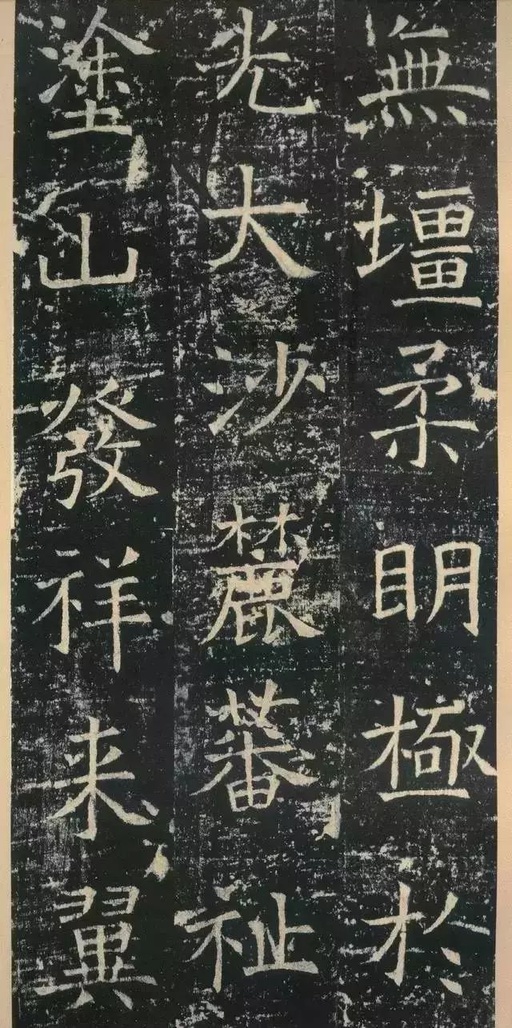 無壃柔眀極於
光大沙麓蕃祉
塗山發祥来翼